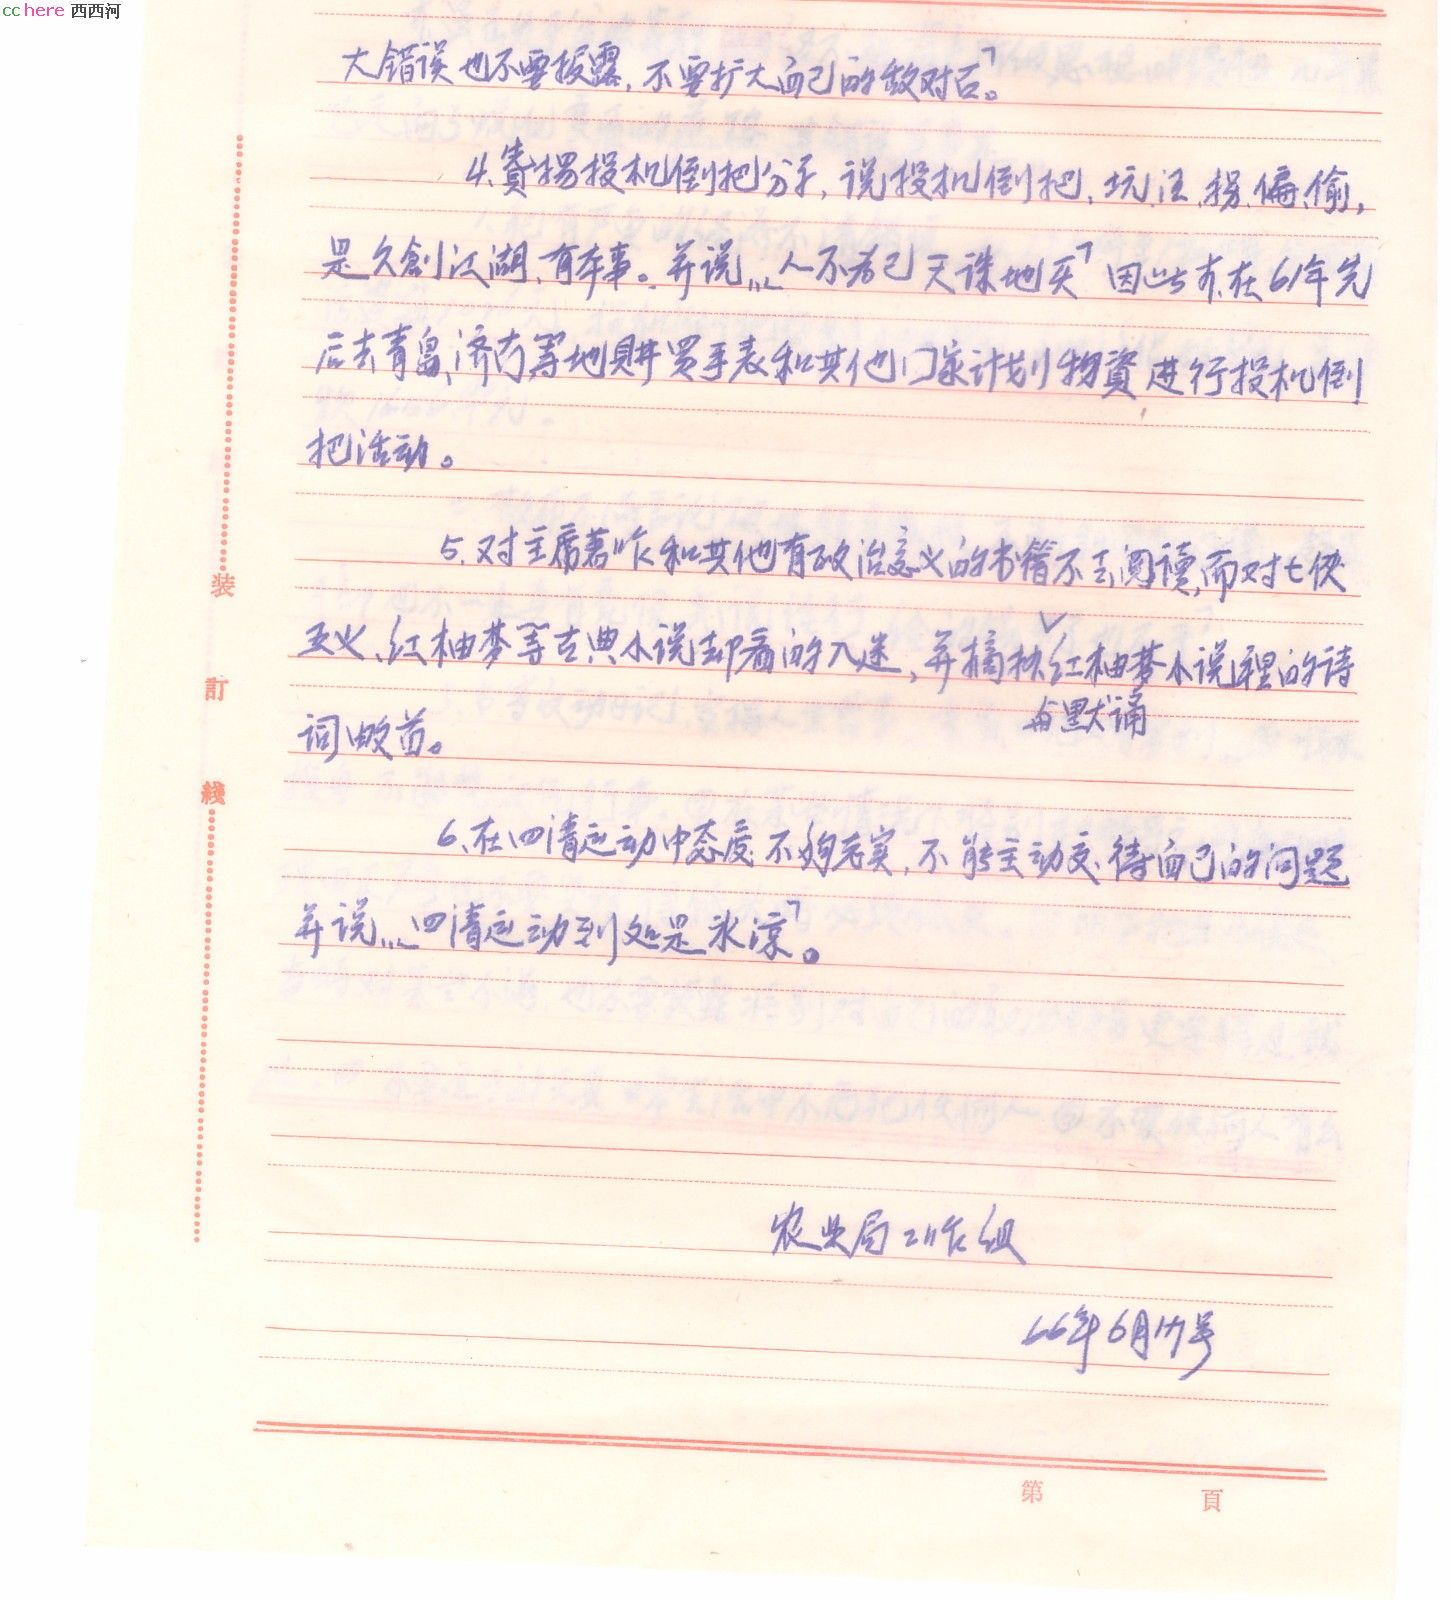 cchere 西西河
大错误也不要揭露，不要扩大自己的敌对面」。
4、赞揚投机倒把分子，说投机倒把、坑、汪、拐、偏、偷，
是久創江湖、有本事。并说„„人不为己天诛地灭」因此亦在61年先
后去青島、济南、等地購買手表和其他国家计划物資进行投机倒
把活动。
5、对主席著作和其他有政治意义的书籍不去阅读，而对七侠
五义、红柚梦等古典小说却看的入迷，并摘抄红柚梦小说裡的诗
与默诵
词数首。
6、在四清运动中态度不够老实，不能主动交待自己的问题
并说„„四清运动到处是冰凉」。
农业局工作组
66年6月17号
装
訂
綫
第 頁